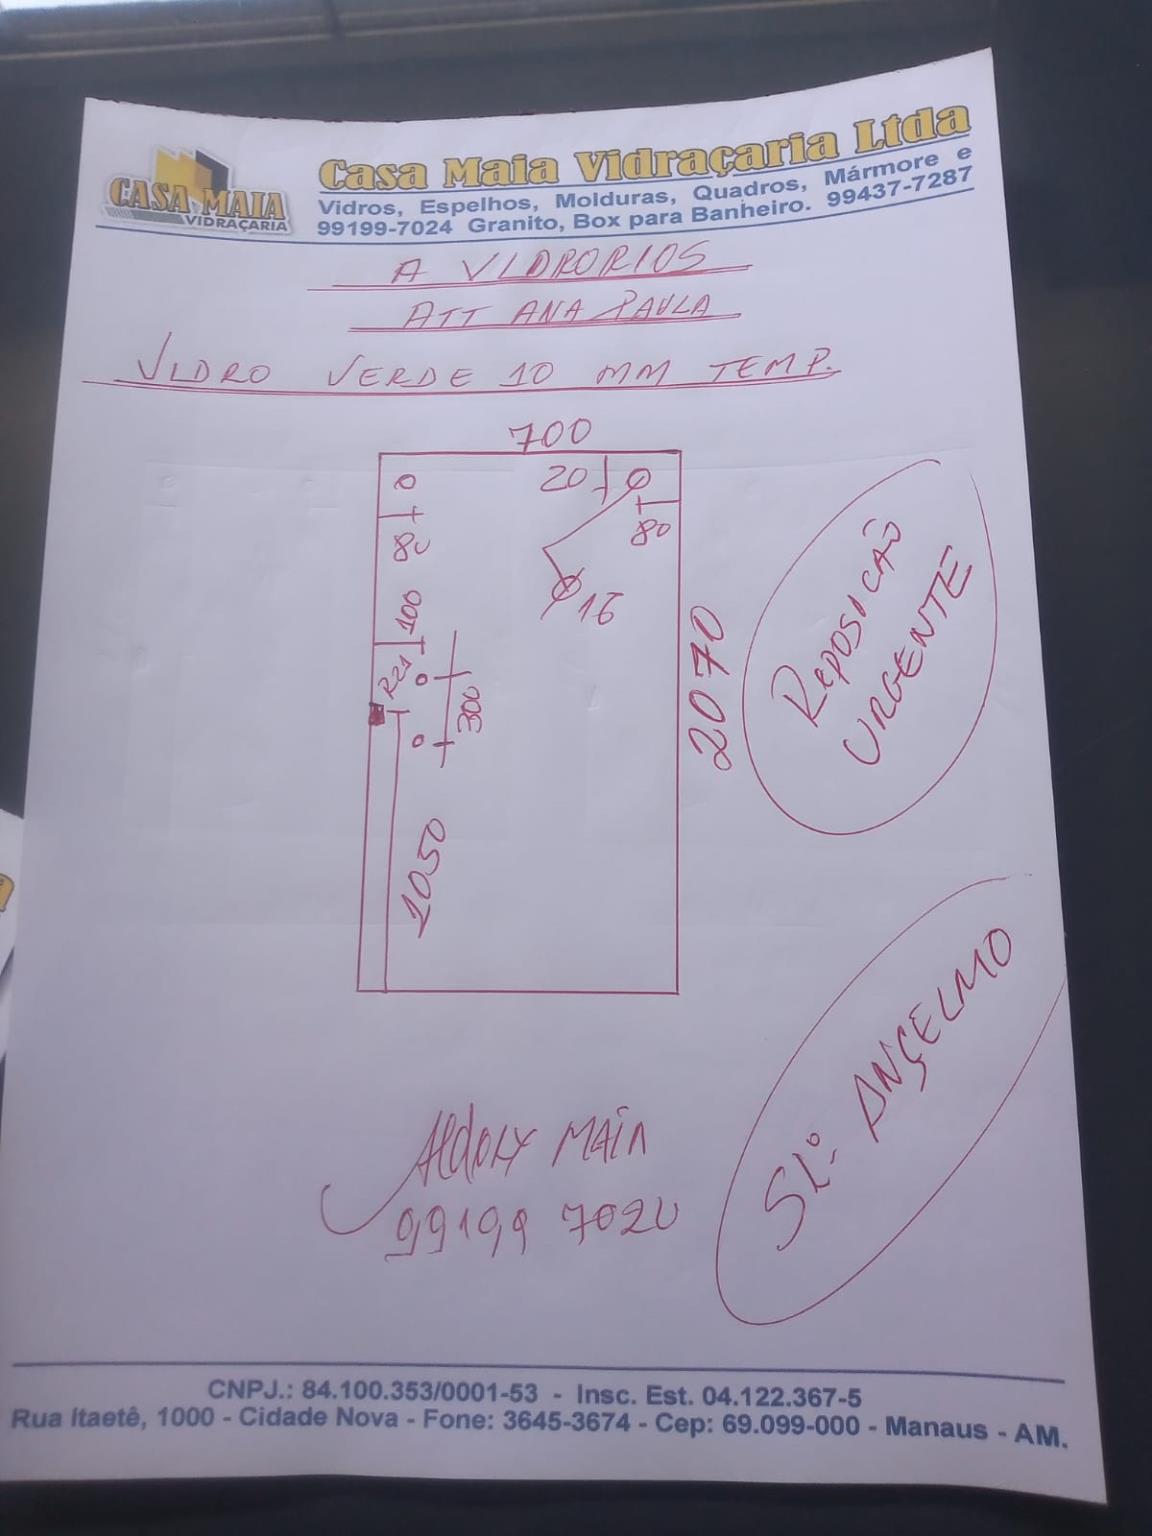 CASA MAIA
VIDRAÇARIA
Casa Maia Vidraçaria Ltda
Vidros, Espelhos, Molduras, Quadros, Mármore e
99199-7024 Granito, Box para Banheiro. 99437-7287
A VIDRORIOS
ATT ANA PAULA
VIDRO VERDE 10 MM TEMP.
700
20
80
80
16
100
R21
300
2070
1050
REPOSICÃO
URGENTE
SRº. ANÇELMO
MAIA
99199 7024
CNPJ.: 84.100.353/0001-53 - Insc. Est. 04.122.367-5
Rua Itaetê, 1000 - Cidade Nova - Fone: 3645-3674 - Cep: 69.099-000 - Manaus - AM.